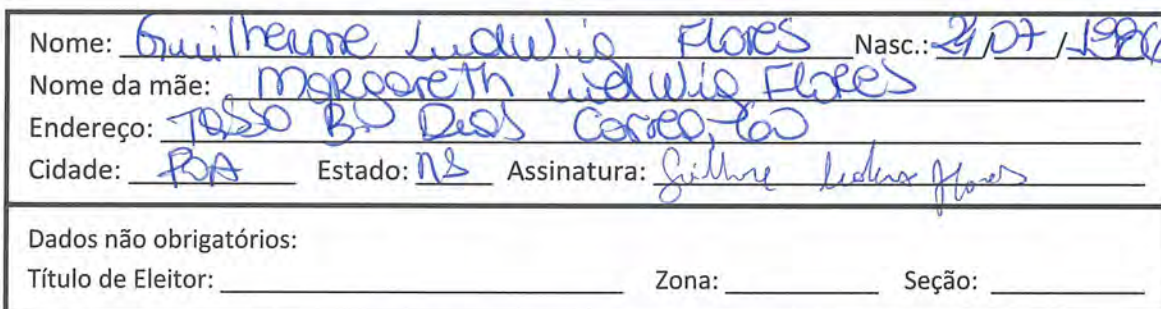 Nome: Guilherme Ludwig Flores Nasc.: 21/07/1986
Nome da mãe: Margareth Ludwig Flores
Endereço: TASSO B. Dias Correa, 160
Cidade: POA Estado: RS Assinatura: Guilherme Ludwig Flores
Dados não obrigatórios:
Título de Eleitor: Zona: Seção: